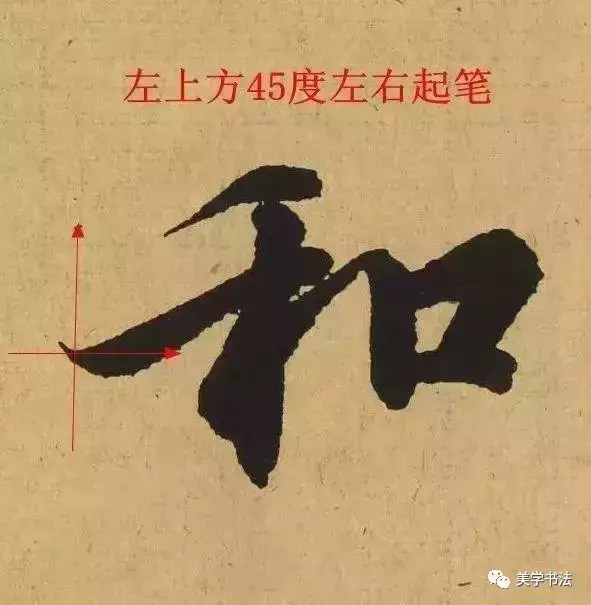 左上方45度左右起笔
和
美学书法